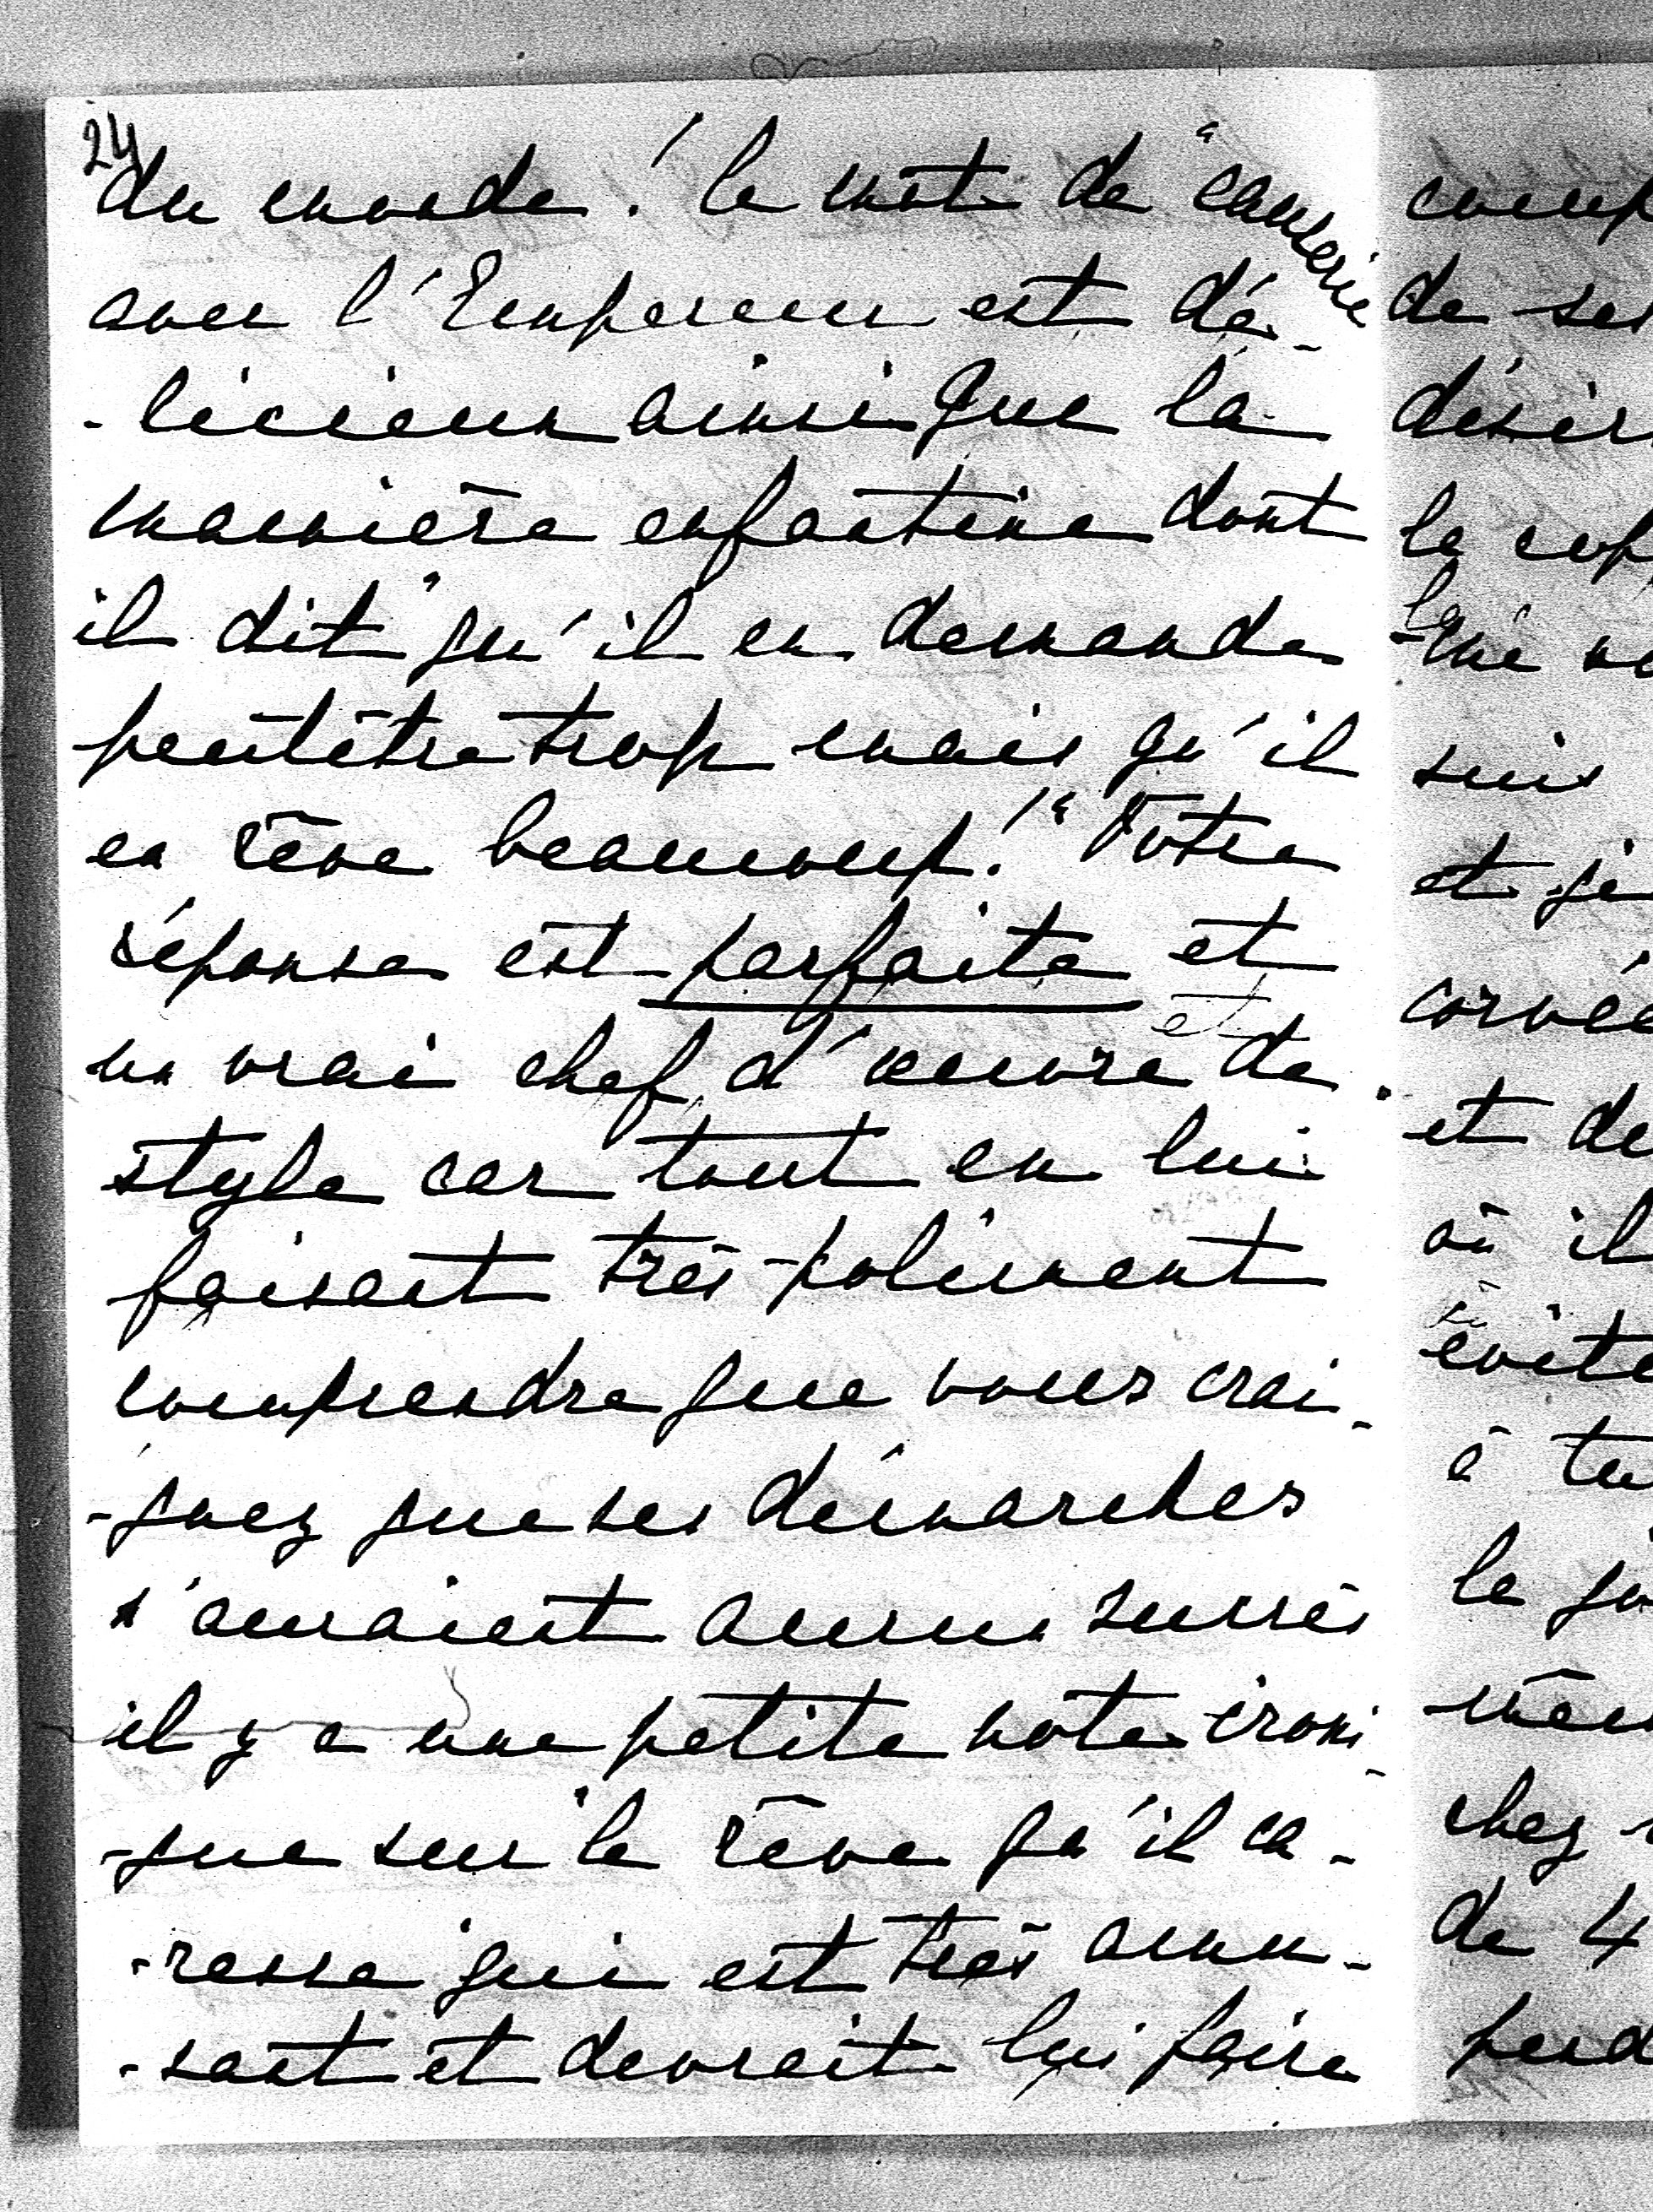 24
du monde! le mot de "causerie
avec l'Empereur est dé-
-licieux ainsi que la
manière enfantine dont
il dit "qu'il en demande
peutêtre trop mais qu'il
en rêve beaucoup!" Votre
réponse est parfaite et
un vrai chef d'œuvre de
style car tout en lui
faisant très-poliment
comprendre que vous crai-
-gnez que ses démarches
n'auraient aucun succès
il y a une petite note ironi-
-que sur le rêve qu'il ca-
-resse qui est très amu-
-sant et devrait lui faire
de ses
désir
suis
et je
corvée
et de
où il
évite
à
le
chez
de 4